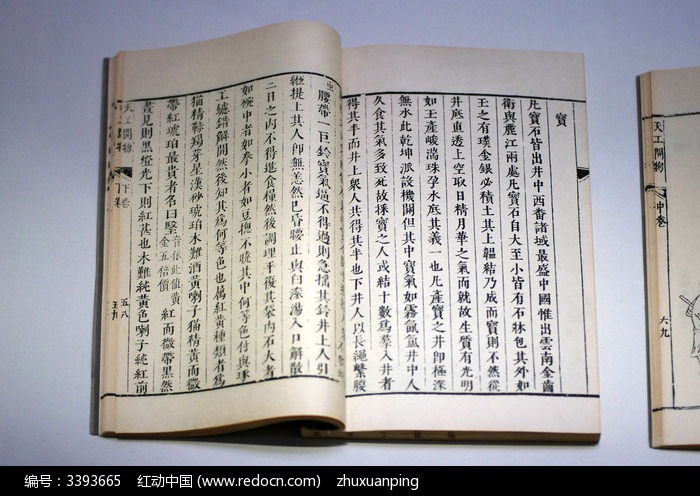 寶
凡寶石皆出井中西番諸域最盛中國惟出雲南金齒
衛與麗江兩處凡寶石自大至小皆有石牀包其外如
玉之有璞金銀必積土其上韞結乃成而寶則不然從
井底直透上空取日精月華之氣而就故生質有光明
如玉產峻湍珠孕水底其義一也凡產寶之井即極深
無水此乾坤派設機關但其中寶氣如霧氤氳井中人
久食其氣多致死故採寶之人或結十數爲羣入井者
得其半而井上衆人共得其半也下井人以長繩繫腰
腰帶一巨鈴寶氣逼不得過則急搖其鈴井上人引
緪提上其人即無恙然已昏瞢止與白滾湯入口解散
三日之內不得進食糧然後調理平復其袋內石大者
如椀中者如拳小者如豆總不曉其中何等色付與琢
工鑢錯解開然後知其爲何等色也屬紅黃種類者爲
貓精靺羯芽星漢砂琥珀木難酒黃喇子貓精黃而微
帶紅琥珀最貴者名曰瑿音依此值黃金五倍價紅而微帶黑然
晝見則黑燈光下則紅甚也木難純黃色喇子純紅前
天工開物 下卷
五八
五九
天工開物
中卷
六九
编号：3393665 红动中国 (www.redocn.com) zhuxuanping